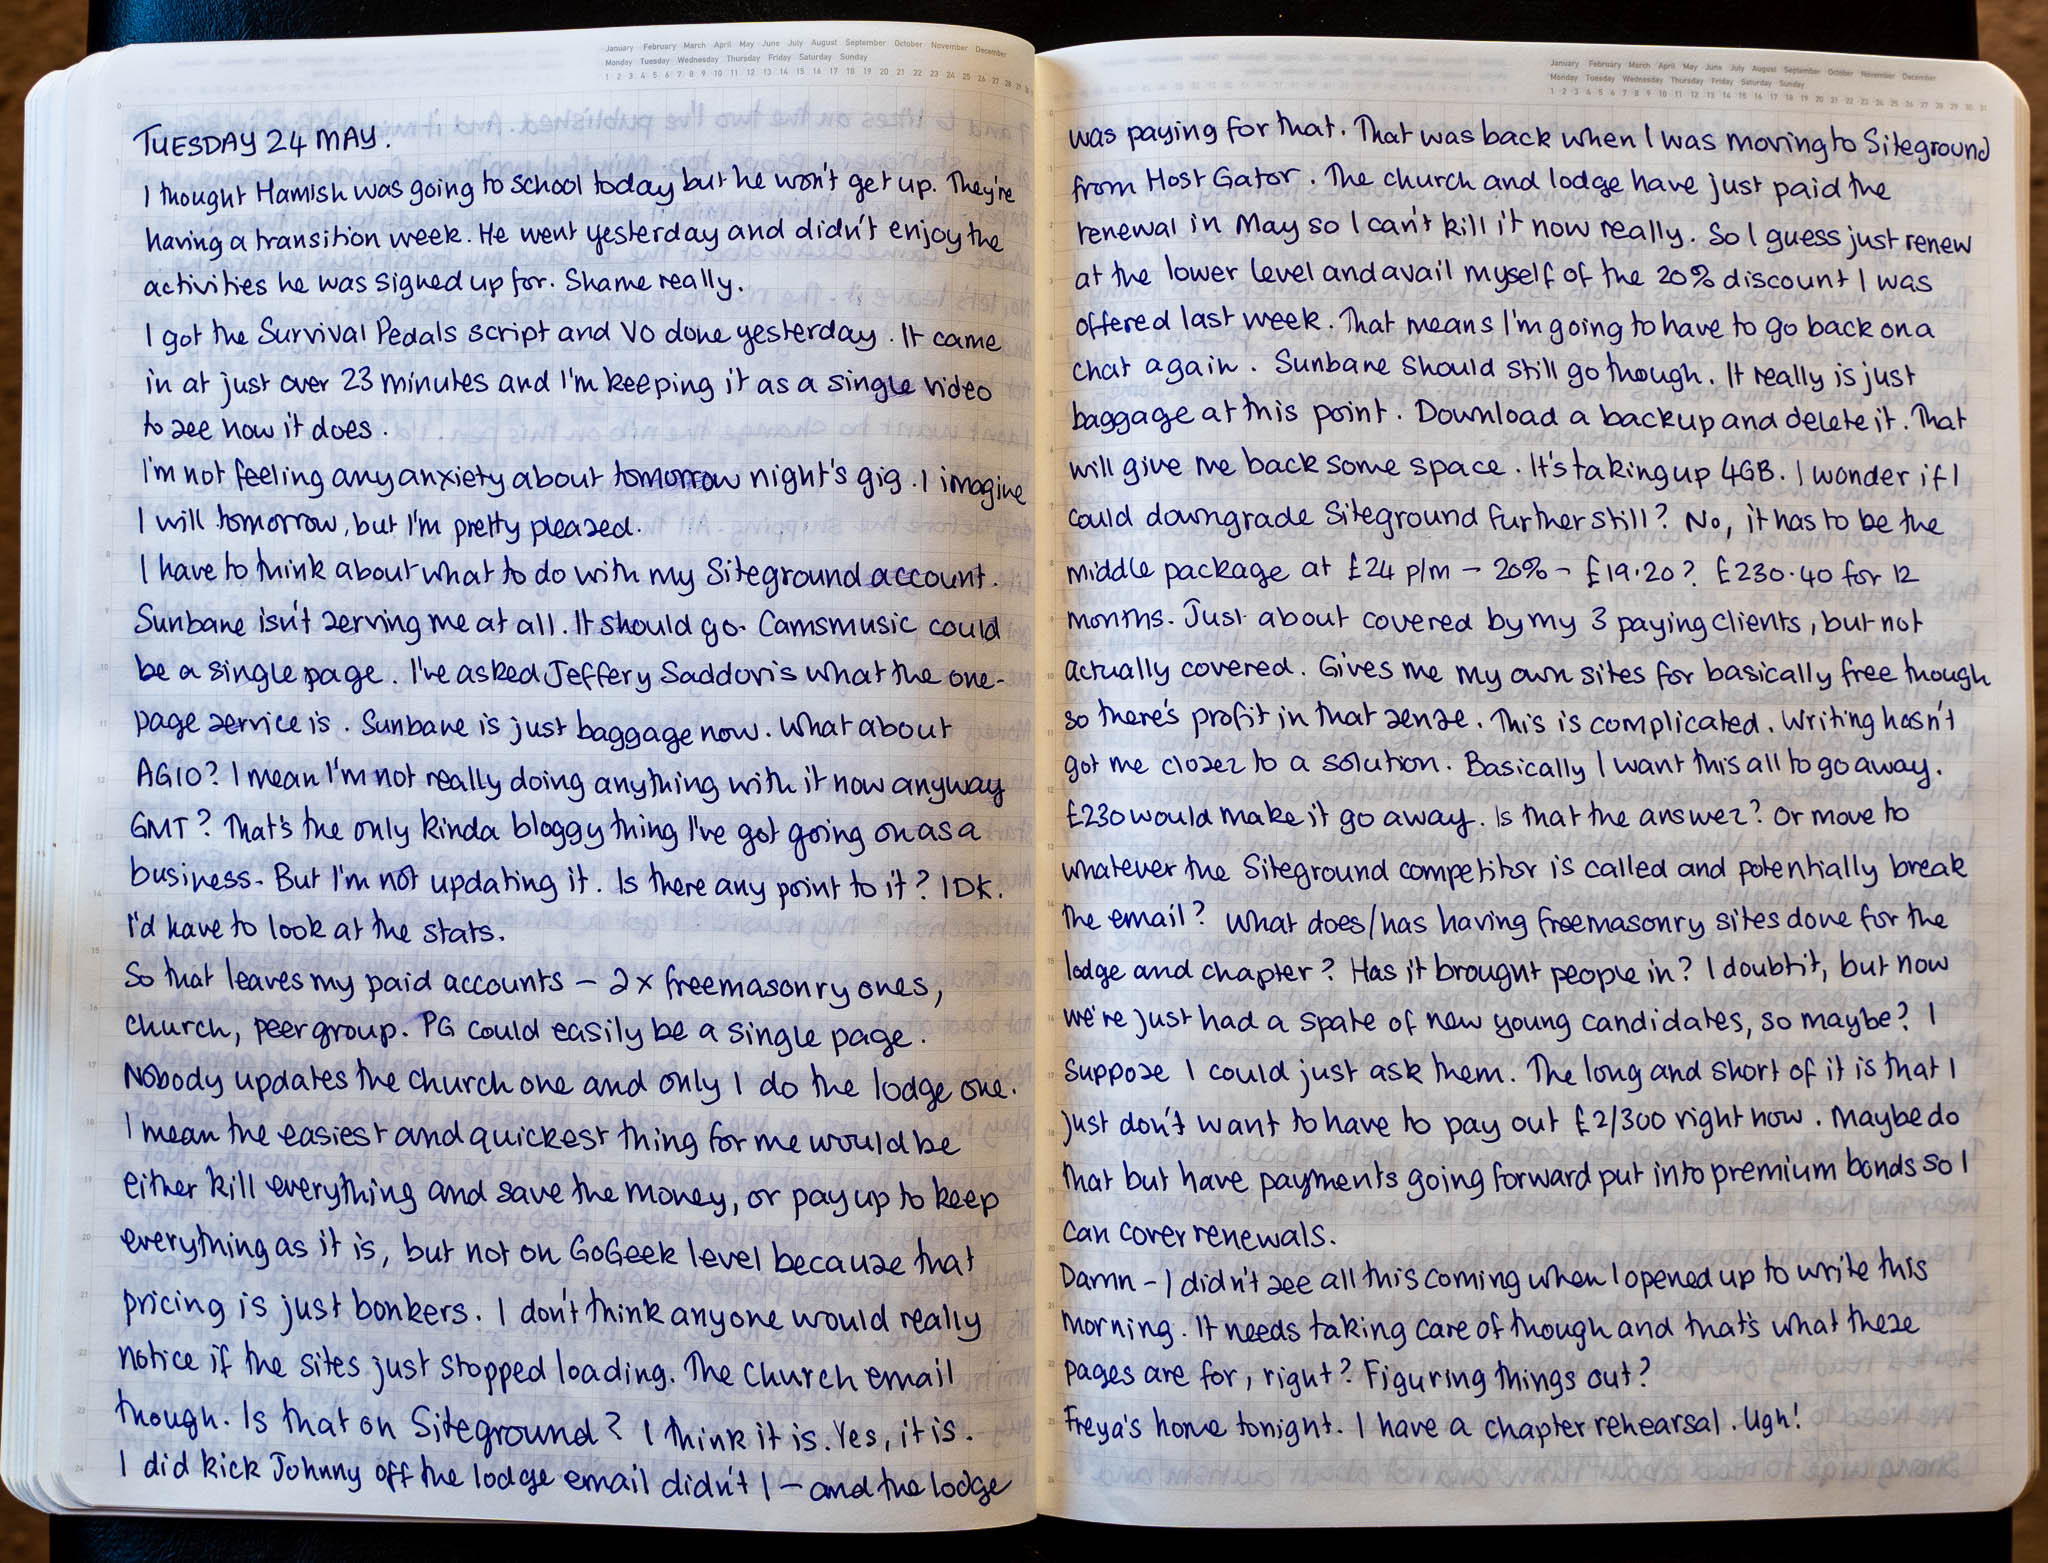 January February March April May June July August September October November December
Monday Tuesday Wednesday Thursday Friday Saturday Sunday
1 2 3 4 5 6 7 8 9 10 11 12 13 14 15 16 17 18 19 20 21 22 23 24 25 26 27 28 29
TUESDAY 24 MAY.
I thought Hamish was going to school today but he won't get up. They're
having a transition week. He went yesterday and didn't enjoy the
activities he was signed up for. Shame really.
I got the Survival Pedals script and VO done yesterday. It came
in at just over 23 minutes and I'm keeping it as a single video
to see how it does.
I'm not feeling any anxiety about tomorrow night's gig. I imagine
I will tomorrow, but I'm pretty pleased.
I have to think about what to do with my Siteground account.
Sunbane isn't serving me at all. It should go. Camsmusic could
be a single page. I've asked Jeffery Saddoris what the one-
page service is. Sunbane is just baggage now. What about
AG10? I mean I'm not really doing anything with it now anyway
GMT? That's the only kinda bloggy thing I've got going on as a
business. But I'm not updating it. Is there any point to it? IDK.
I'd have to look at the stats.
So that leaves my paid accounts – 2x freemasonry ones,
church, peer group. PG could easily be a single page.
Nobody updates the church one and only I do the lodge one.
I mean the easiest and quickest thing for me would be
either kill everything and save the money, or pay up to keep
everything as it is, but not on GoGeek level because that
pricing is just bonkers. I don't think anyone would really
notice if the sites just stopped loading. The church email
though. Is that on Siteground? I think it is. Yes, it is.
I did kick Johnny off the lodge email didn't I – and the lodge
January February March April May June July August September October November December
Monday Tuesday Wednesday Thursday Friday Saturday Sunday
1 2 3 4 5 6 7 8 9 10 11 12 13 14 15 16 17 18 19 20 21 22 23 24 25 26 27 28 29 30 31
was paying for that. That was back when I was moving to Siteground
from Host Gator. The church and lodge have just paid the
renewal in May so I can't kill it now really. So I guess just renew
at the lower level and avail myself of the 20% discount I was
offered last week. That means I'm going to have to go back on a
chat again. Sunbane should still go though. It really is just
baggage at this point. Download a backup and delete it. That
will give me back some space. It's taking up 4GB. I wonder if I
could downgrade Siteground further still? No, it has to be the
middle package at £24 p/m – 20% – £19.20? £230.40 for 12
months. Just about covered by my 3 paying clients, but not
actually covered. Gives me my own sites for basically free though
so there's profit in that sense. This is complicated. Writing hasn't
got me closer to a solution. Basically I want this all to go away.
£230 would make it go away. Is that the answer? Or move to
whatever the Siteground competitor is called and potentially break
the email? What does/has having freemasonry sites done for the
lodge and chapter? Has it brought people in? I doubt it, but now
we're just had a spate of new young candidates, so maybe? I
suppose I could just ask them. The long and short of it is that I
just don't want to have to pay out £2/300 right now. Maybe do
that but have payments going forward put into premium bonds so I
can cover renewals.
Damn – I didn't see all this coming when I opened up to write this
morning. It needs taking care of though and that's what these
pages are for, right? Figuring things out?
Freya's home tonight. I have a chapter rehearsal. Ugh!